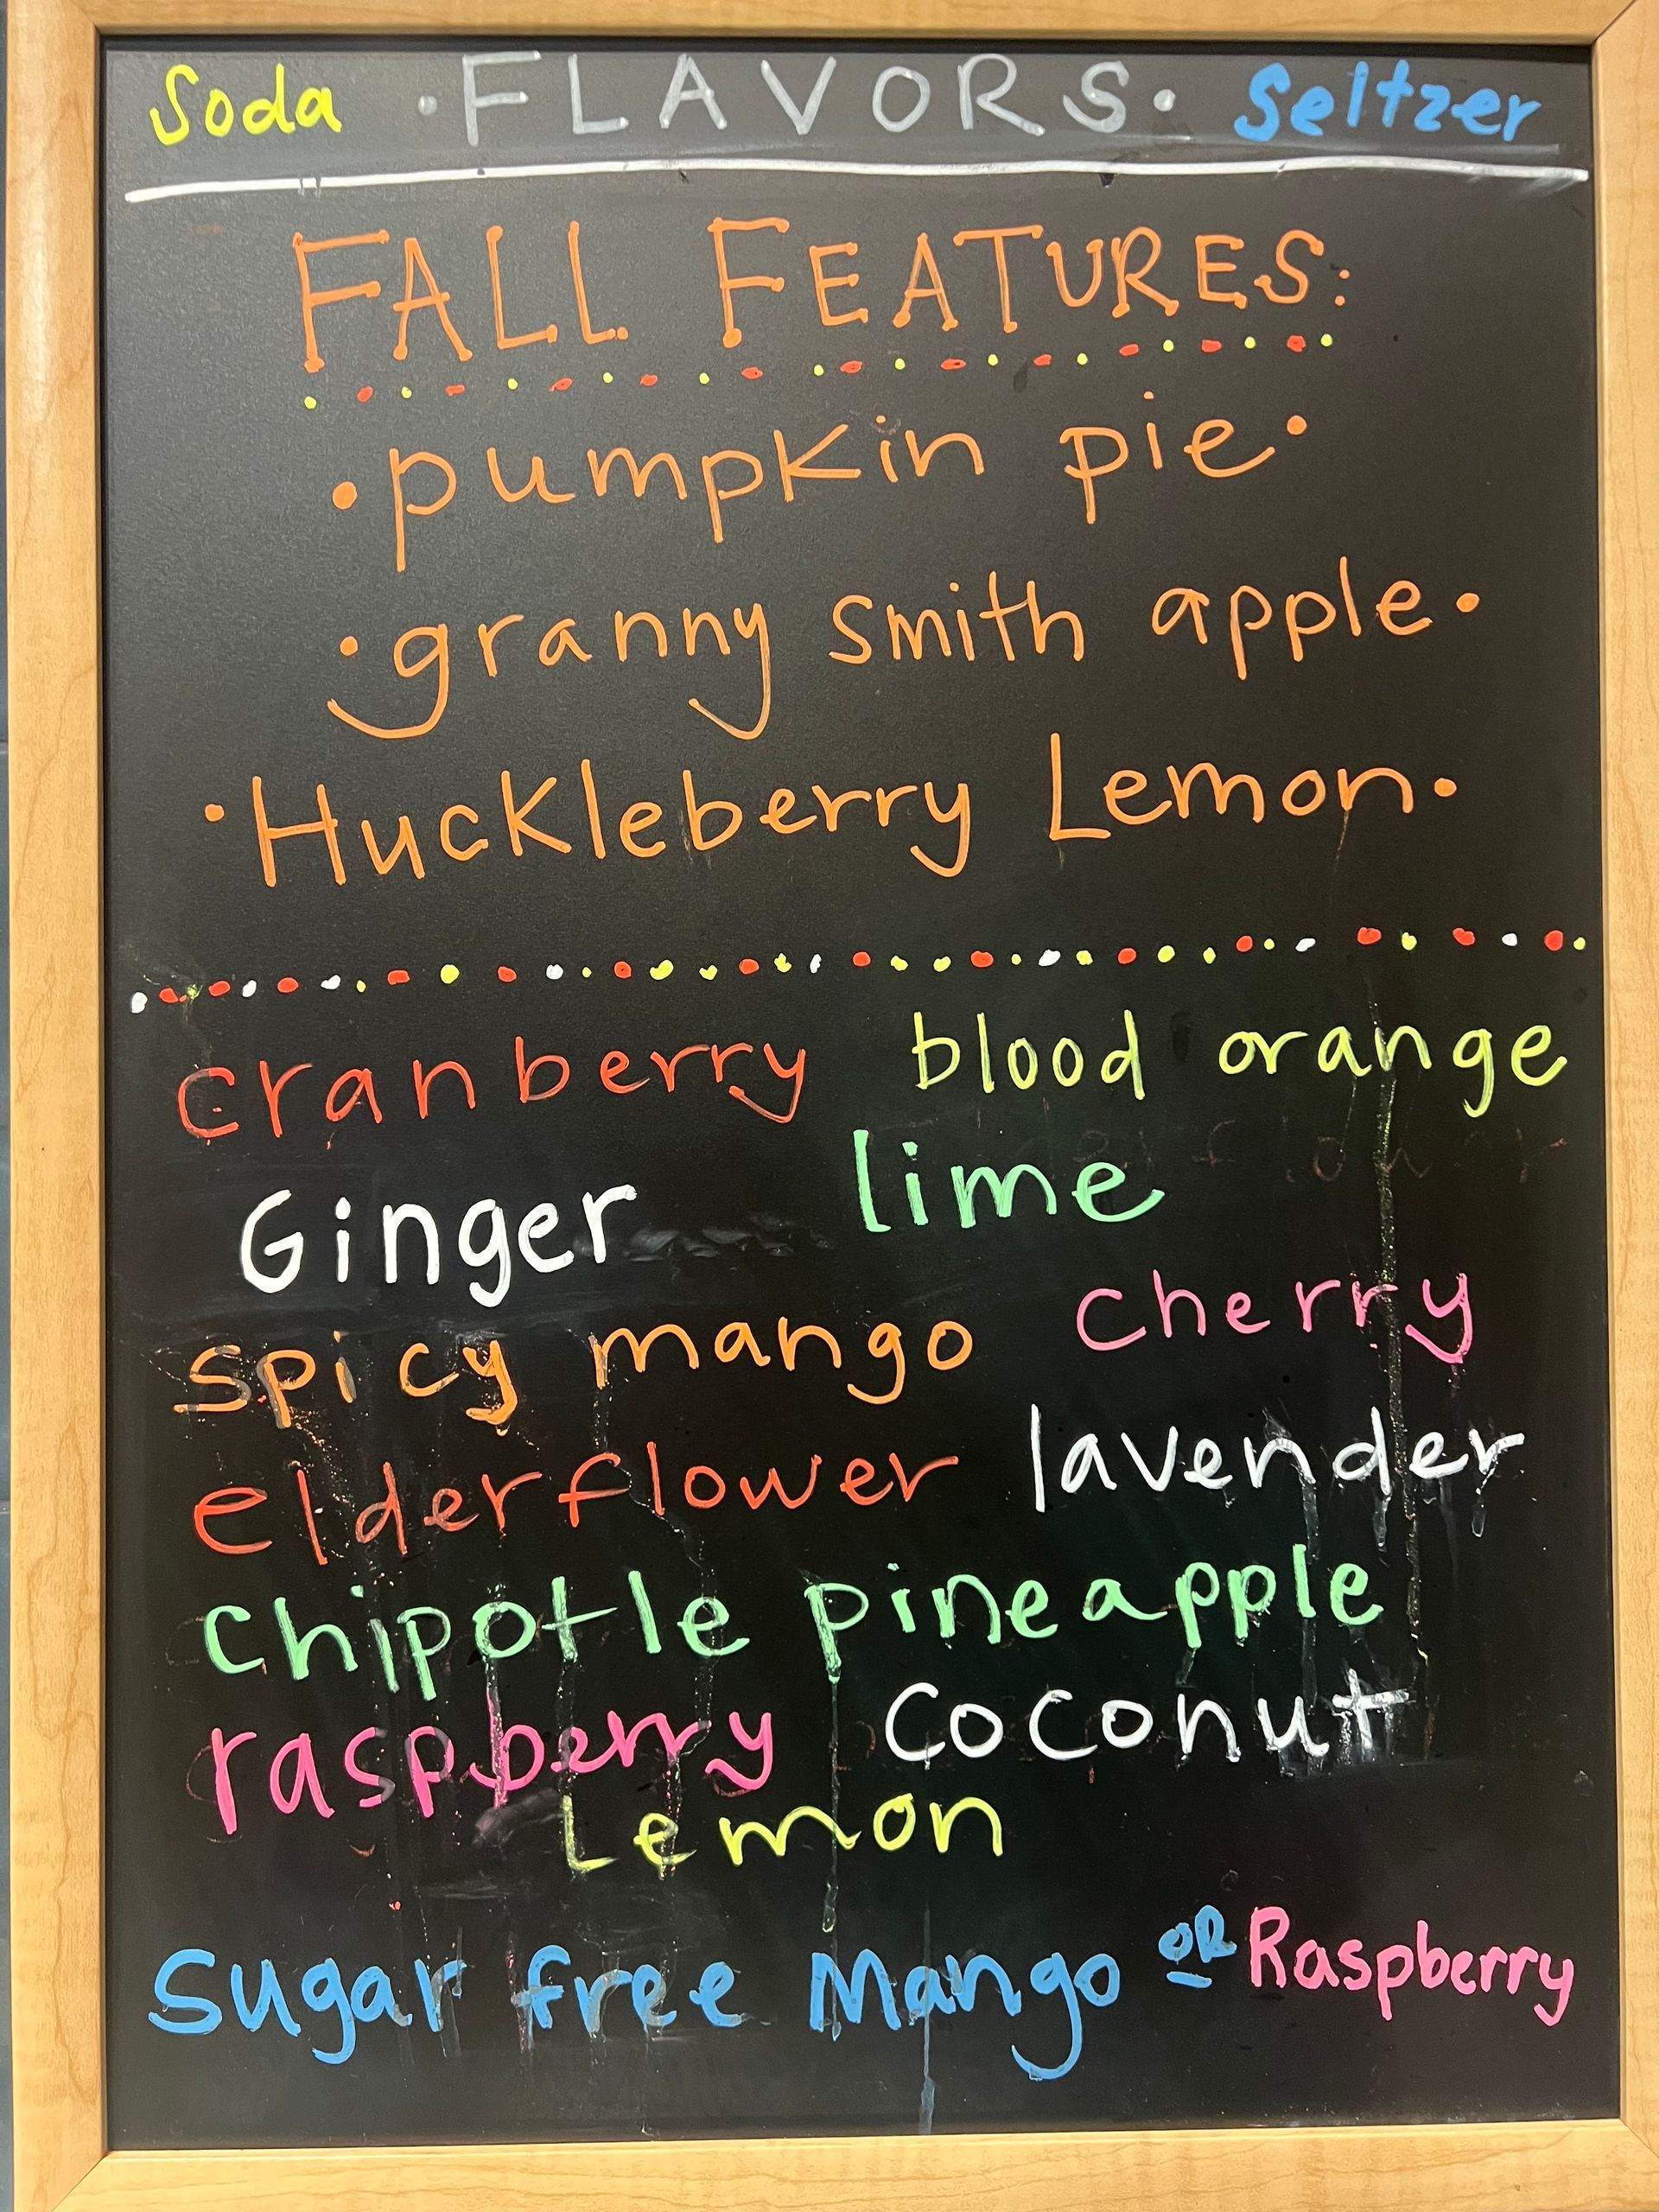 Soda • FLAVORS • Seltzer
FALL FEATURES:
• pumpkin pie •
• granny smith apple •
• Huckleberry Lemon •
cranberry blood orange
Ginger lime
spicy mango cherry
elderflower lavender
chipotle pineapple
raspberry coconut
Lemon
Sugar free Mango OR Raspberry